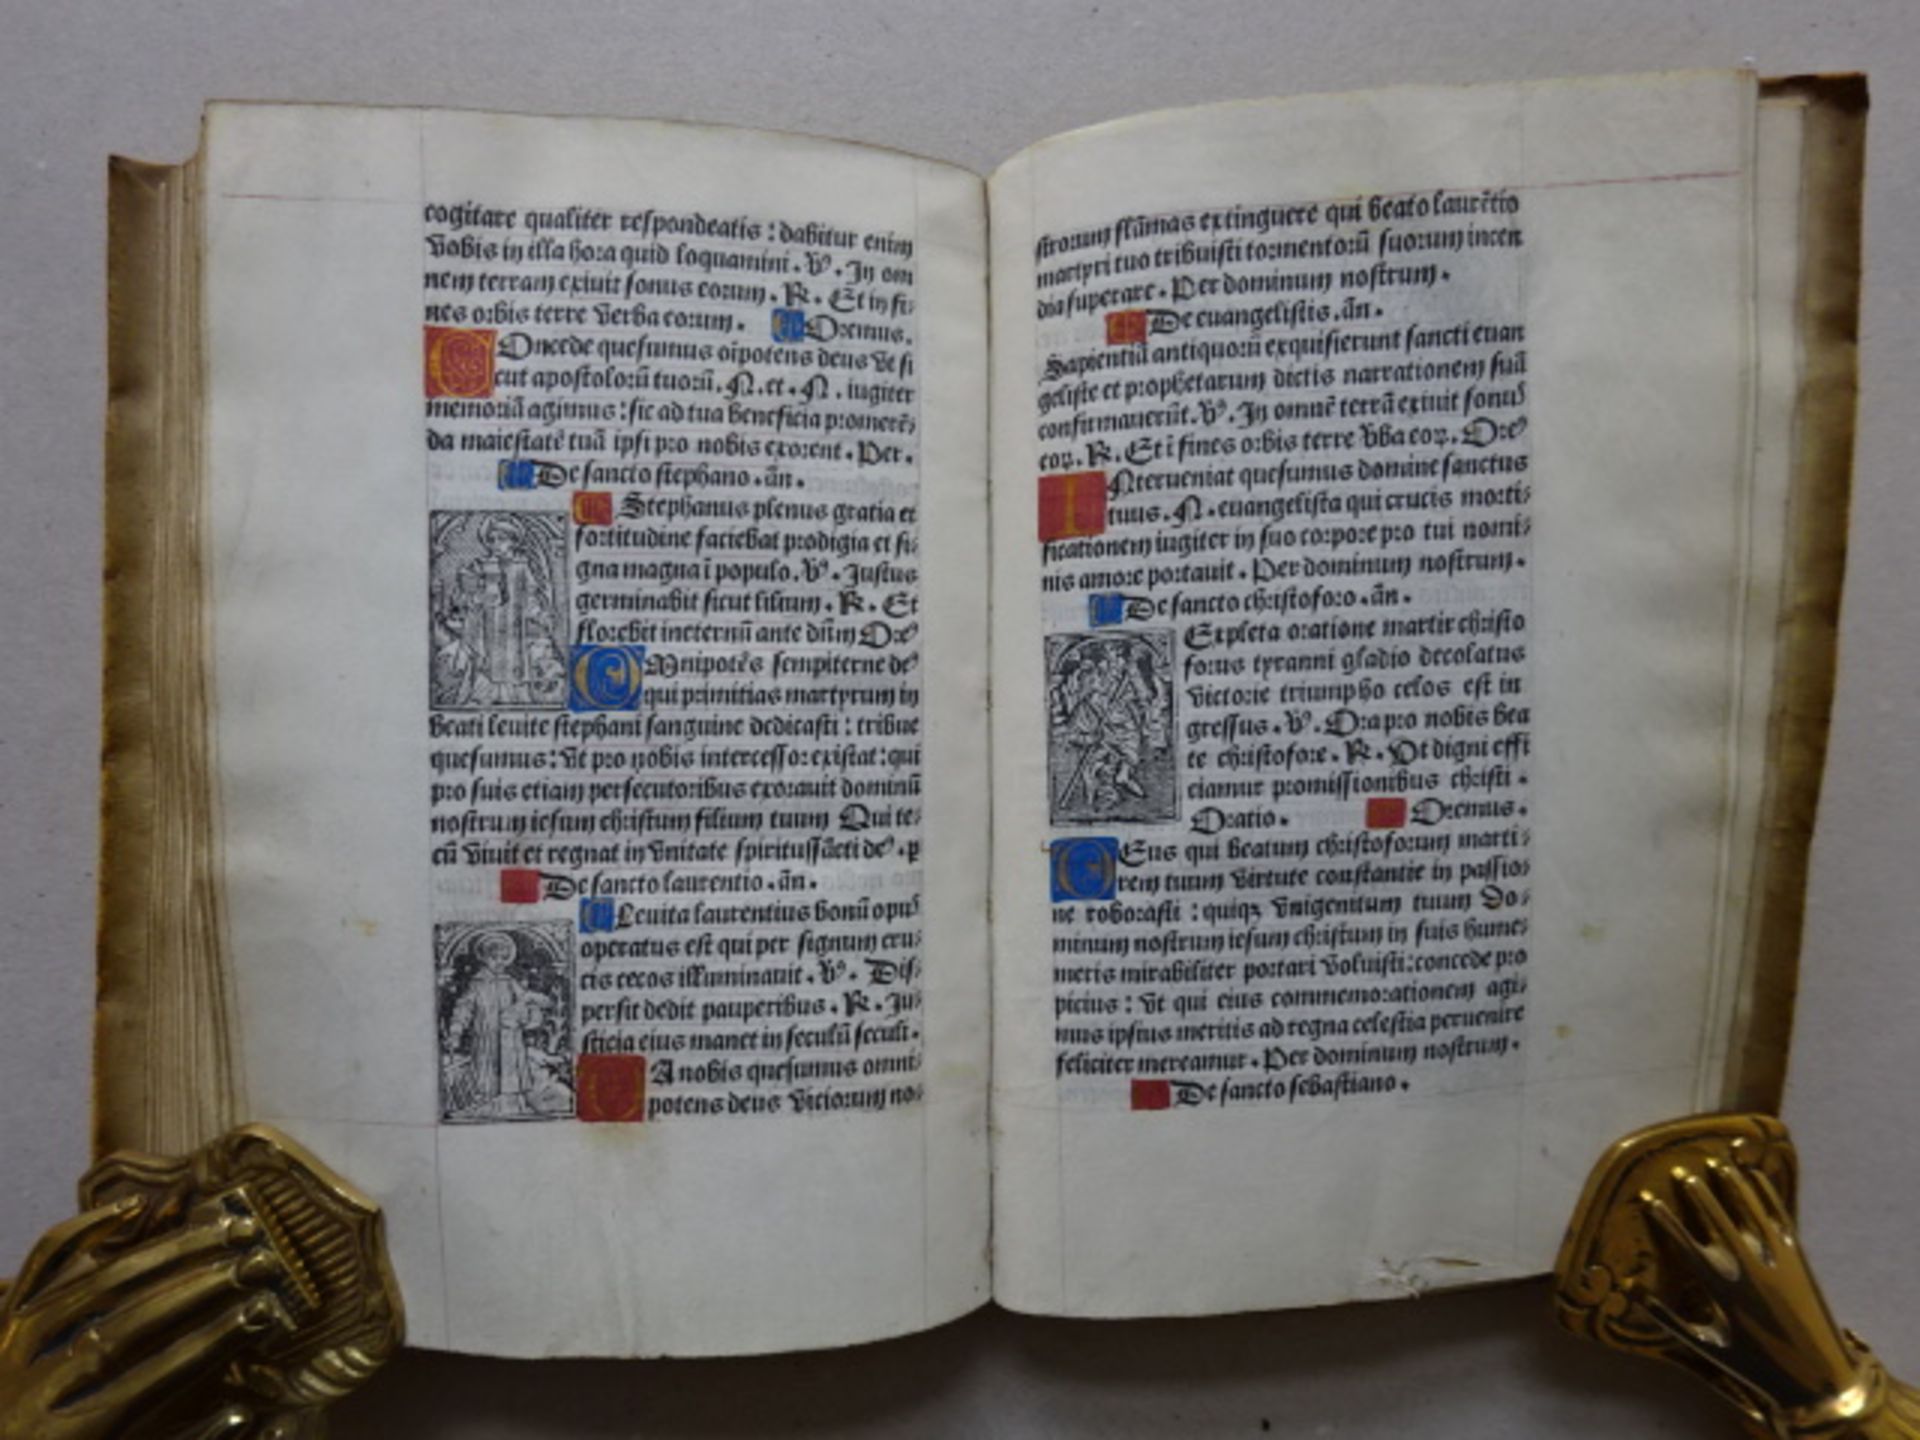 cogitare qualiter respondeatis : dabitur enim
vobis in illa hora quid loquamini . V̉ . In om
nem terram exiuit sonus eorum . R . Et in fi⸗
nes orbis terre verba eorum . Oremus .
COncede quesumus oīpotens deus vt si
cut apostolorū tuorū . N . et . N . iugiter
memoriā agimus : sic ad tua beneficia promerē⸗
da maiestatē tuā ipsi pro nobis exorent . Per .
De sancto stephano . añ .
Stephanus plenus gratia et
fortitudine faciebat prodigia et si⸗
gna magna ī populo . V̉ . Justus
germinabit sicut lilium . R . Et
florebit ineternū ante dūm Oreꝰ
OMnipotēs sempiterne deꝰ
qui primitias martyrum in
beati leuite stephani sanguine dedicasti : tribue
quesumus : vt pro nobis intercessor existat : qui
pro suis etiam persecutoribus exorauit dominū
nostrum iesum christum filium tuum Qui te⸗
cū viuit et regnat in vnitate spiritussācti deꝰ . p
De sancto laurentio . añ .
Leuita laurentius bonū opuꝰ
operatus est qui per signum cru⸗
cis cecos illuminauit . V̉ . Dis⸗
persit dedit pauperibus . R . Ju⸗
sticia eius manet in seculū seculi .
DA nobis quesumus omni⸗
potens deus viciorum no⸗
strorum flāmas extinguere qui beato laurētio
martyri tuo tribuisti tormentorū suorum incen
dia superare . Per dominum nostrum .
De euangelistis . añ .
Sapientiā antiquorū exquisierunt sancti euan
geliste et prophetarum dictis narrationem suā
confirmauerūt . V̉ . In omnē terrā exiuit sonuꝰ
eoꝝ . R . Et ī fines orbis terre vba eoꝝ . Oreꝰ
INterueniat quesumus domine sanctus
tuus . N . euangelista qui crucis morti⸗
ficationem iugiter in suo corpore pro tui nomi⸗
nis amore portauit . Per dominum nostrum .
De sancto christoforo . añ .
Expleta oratione martir christo
forus tyranni gladio decolatus
victorie triumpho celos est in
gressus . V̉ . Ora pro nobis bea
te christofore . R . Vt digni effi
ciamur promissionibus christi .
Oratio . Oremus .
DEus qui beatum christoforum marti⸗
rem tuum virtute constantie in passio⸗
ne roborasti : quiqꝫ vnigenitum tuum do⸗
minum nostrum iesum christum in suis hume⸗
meris mirabiliter portari voluisti : concede pro
picius : vt qui eius commemorationem agi⸗
mus ipsius meritis ad regna celestia peruenire
feliciter mereamur . Per dominum nostrum .
De sancto sebastiano .